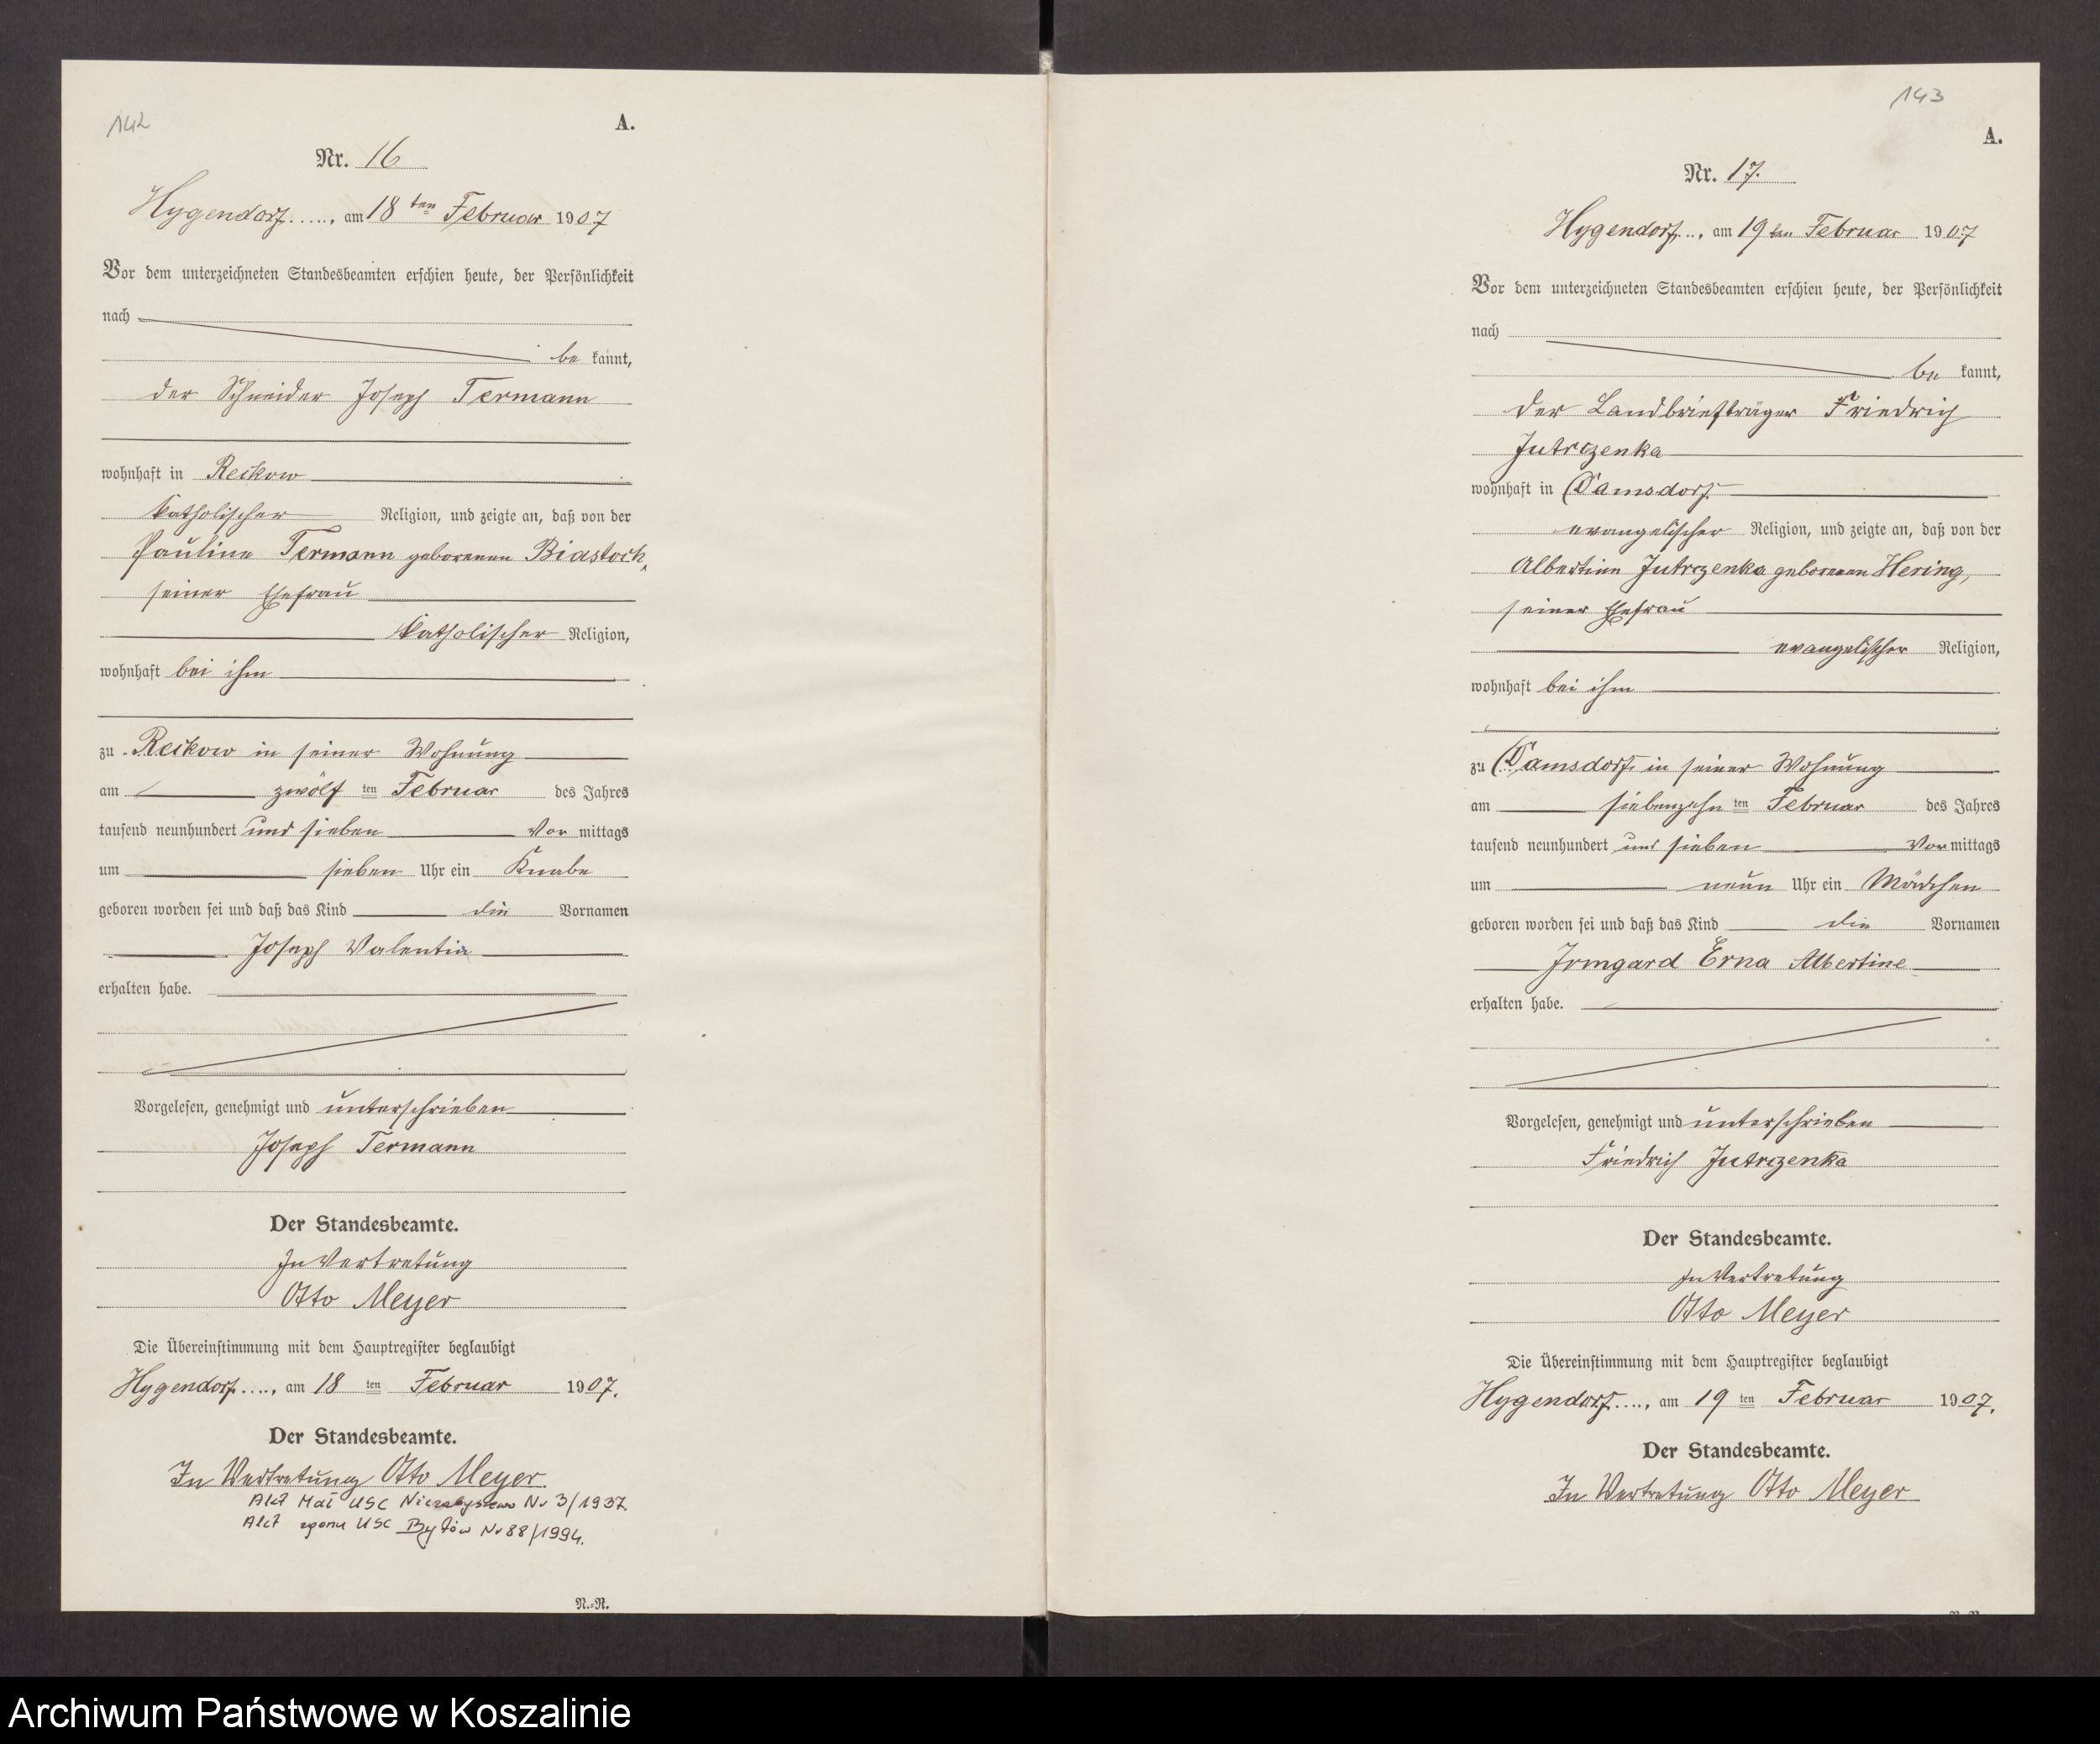 142
A.
Nr. 16
Hygendorf ....., am 18 ten Februar 1907
Vor dem unterzeichneten Standesbeamten erschien heute, der Persönlichkeit
nach
be kannt,
der Schneider Joseph Termann
wohnhaft in Reckow
katholischer Religion, und zeigte an, daß von der
Pauline Termann geborenen Biastoch,
seiner Ehefrau
katholischer Religion,
wohnhaft bei ihm
zu Reckow in seiner Wohnung
am zwölf ten Februar des Jahres
tausend neunhundert und sieben Vor mittags
um sieben Uhr ein Knabe
geboren worden sei und daß das Kind die Vornamen
Joseph Valentin
erhalten habe.
Vorgelesen, genehmigt und unterschrieben
Joseph Termann
Der Standesbeamte.
In Vertretung
Otto Meyer
Die Übereinstimmung mit dem Hauptregister beglaubigt
Hygendorf ...., am 18 ten Februar 1907.
Der Standesbeamte.
In Vertretung Otto Meyer
Akt Mał USC Niezabyszewo Nr 3/1937.
Akt zgonu USC Bytów Nr 88/1994.
N.-R.
143
A.
Nr. 17.
Hygendorf..., am 19 ten Februar 1907
Vor dem unterzeichneten Standesbeamten erschien heute, der Persönlichkeit
nach
be kannt,
der Landbriefträger Friedrich
Jutrczenka
wohnhaft in Damsdorf
evangelischer Religion, und zeigte an, daß von der
Albertine Jutrczenka geborenen Hering,
seiner Ehefrau
evangelischer Religion,
wohnhaft bei ihm
zu Damsdorf in seiner Wohnung
am siebenzehn ten Februar des Jahres
tausend neunhundert und sieben Vor mittags
um neun Uhr ein Mädchen
geboren worden sei und daß das Kind die Vornamen
Irmgard Erna Albertine
erhalten habe.
Vorgelesen, genehmigt und unterschrieben
Friedrich Jutrczenka
Der Standesbeamte.
In Vertretung
Otto Meyer
Die Übereinstimmung mit dem Hauptregister beglaubigt
Hygendorf ...., am 19 ten Februar 1907.
Der Standesbeamte.
In Vertretung Otto Meyer
Archiwum Państwowe w Koszalinie